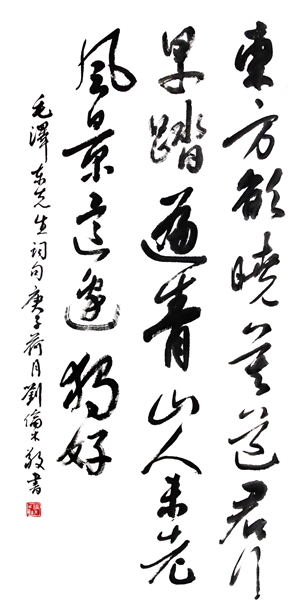 東方欲曉莫道君行
早踏遍青山人未老
風景這邊獨好
毛澤东先生词句庚子荷月劉倫木敬書